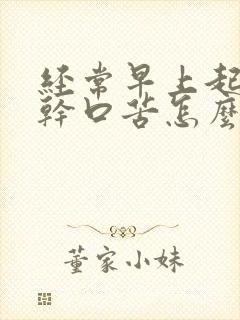 经常早上起
幹口苦怎麼
董家小妹